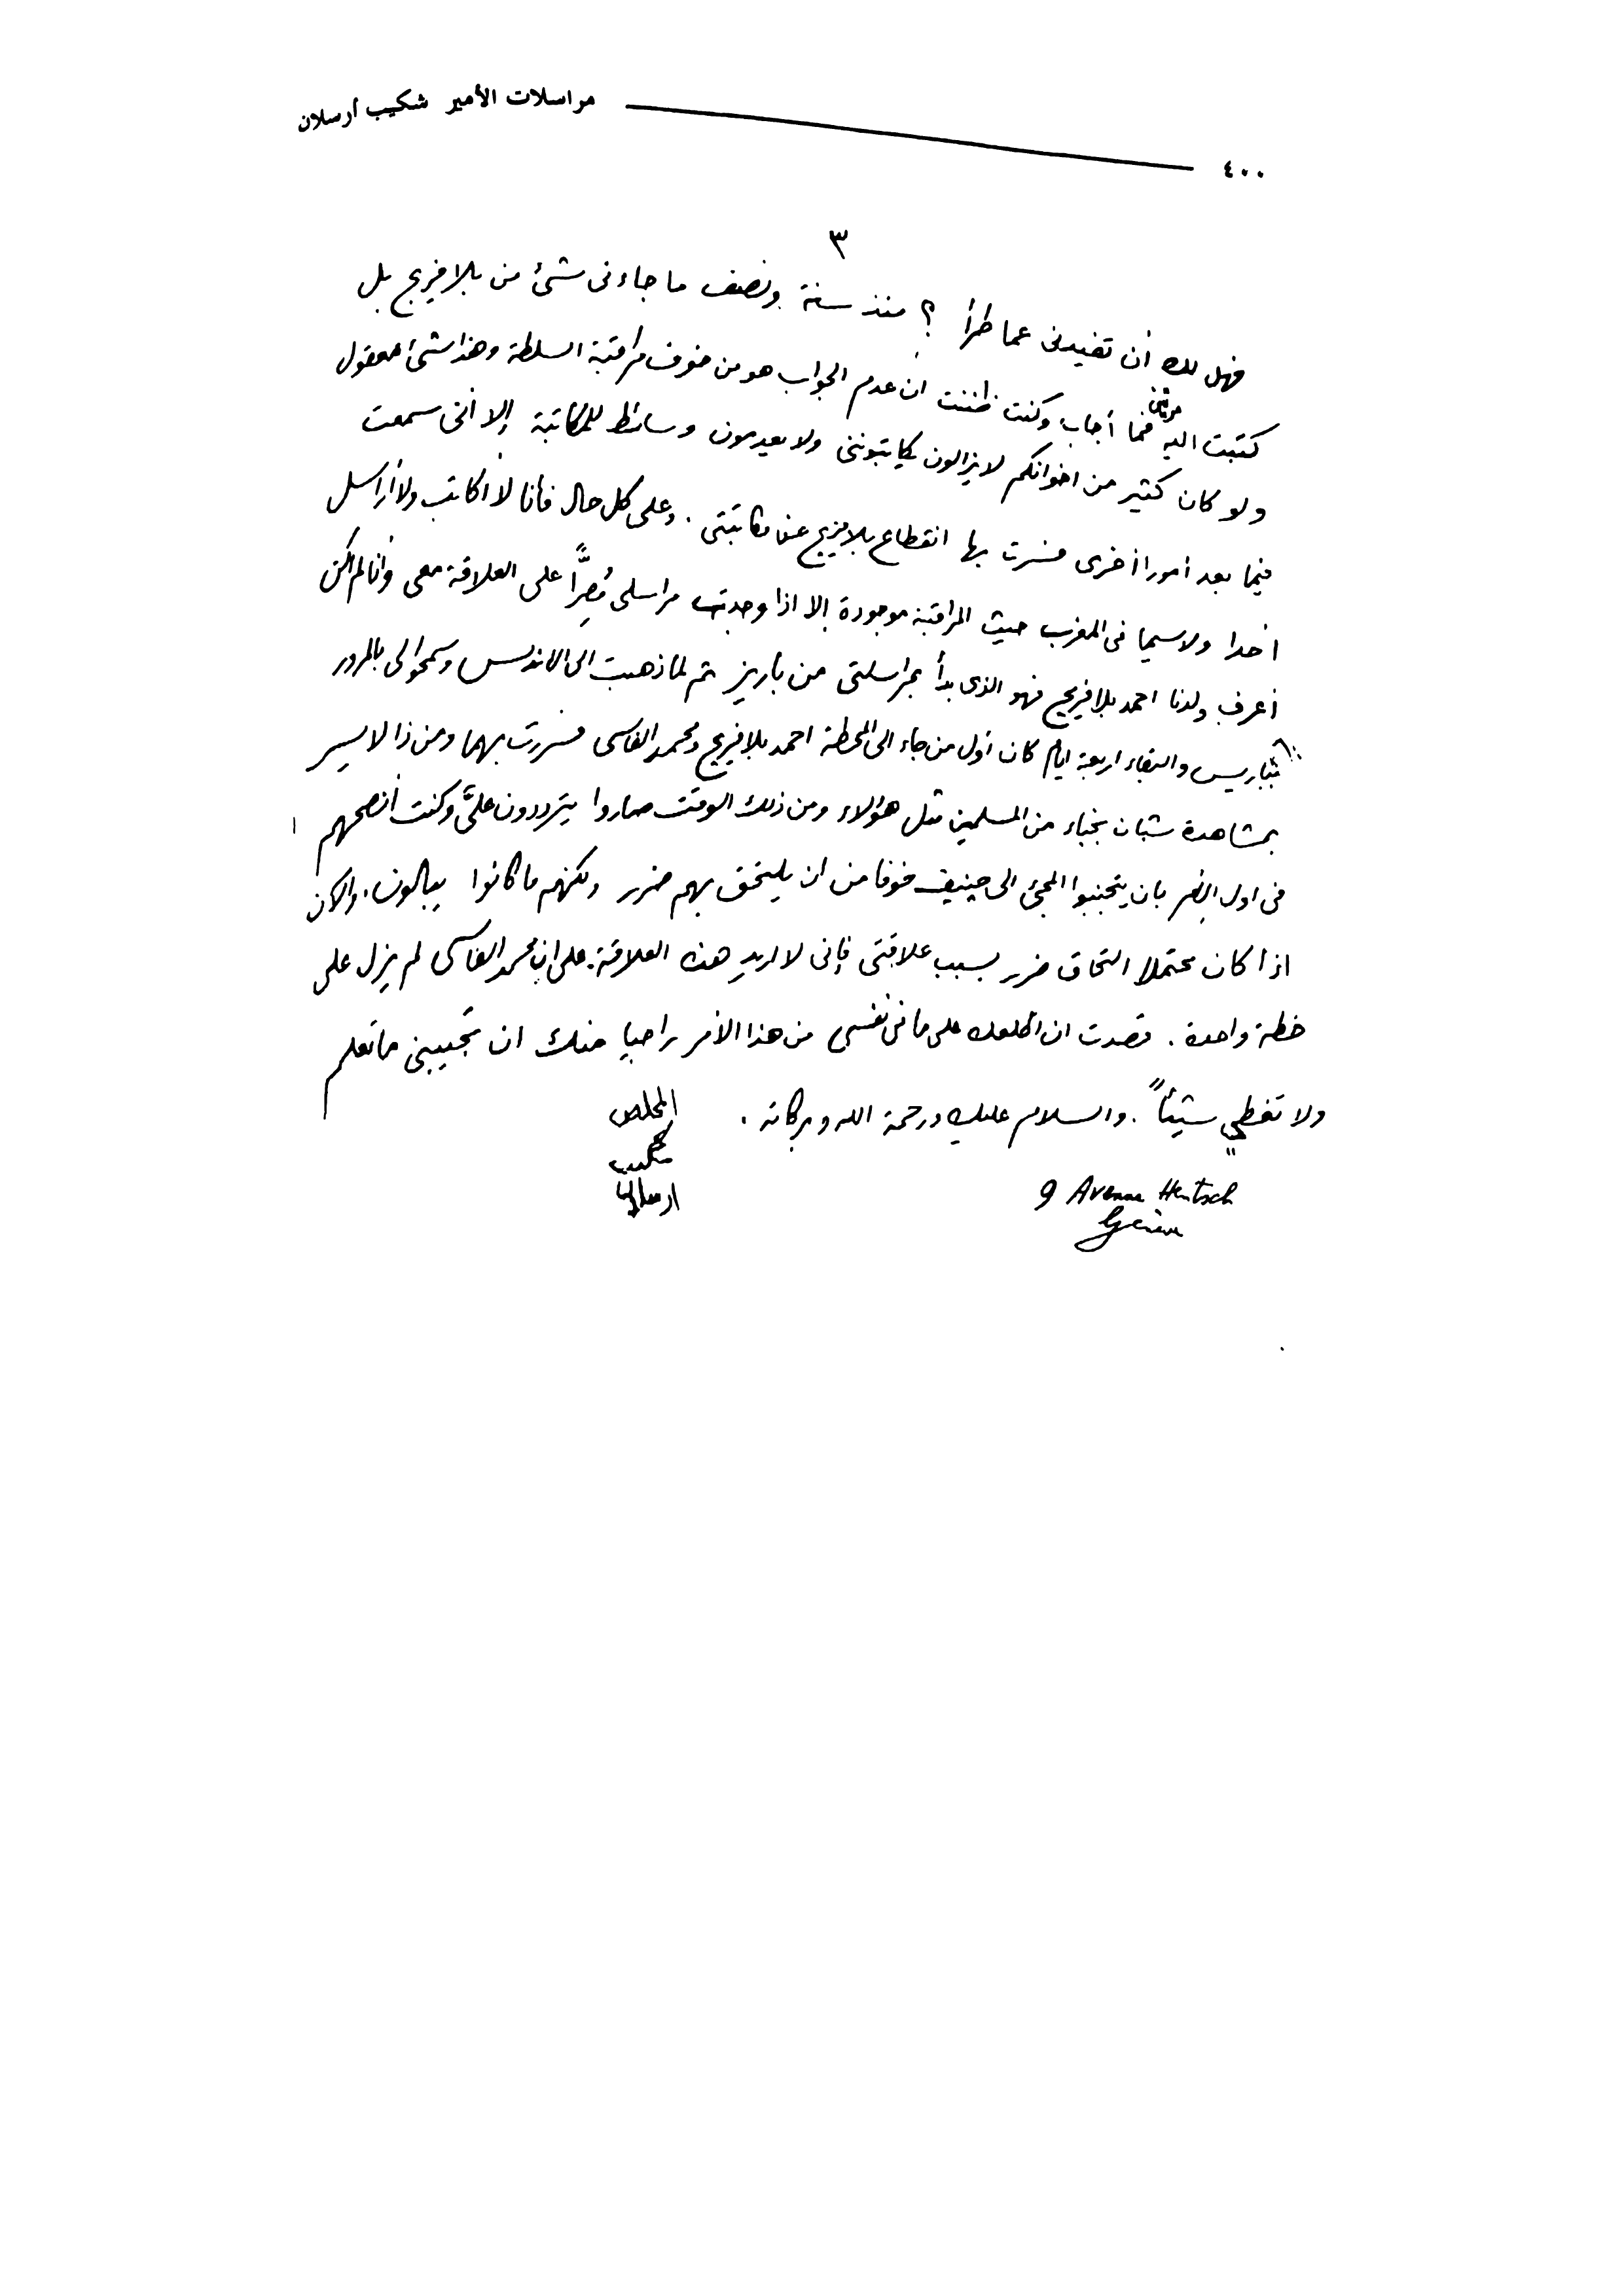 مراسلات الأمير شكيب أرسلان
٤٠٠
٣
فهل لك أن تفيدنى عما طرأ ؟ منذ سنة ونصف ما جاءنى شئ من بلافريج بل
كتبت اليه مرتين فما أجاب وكنت ظننت ان عدم الجواب هو من خوف مراقبة السلطة وهذا شئ معقول
ولو كان كثير من اخوانكم لا يزالون يكاتبوننى ولا يعدمون وسائط للمكاتبة إلا أنى سمعت
فيما بعد أمورا أخرى فسرت بها انقطاع بلافريج عن مكاتبتى . وعلى كل حال فأنا لا أكاتب ولا أراسل
أحدا ولا سيما فى المغرب حيث المراقبة موجودة إلا اذا وجدت مراسلى مُصِرًّا على العلاقة معى وأنا لم أكن
أعرف ولدنا احمد بلافريج فهو الذى بدأ بمراسلتى من باريز ثم لما ذهبت الى الاندلس وسمحوا لى بالمرور
بباريس والبقاء اربعة ايام كان أول من جاء الى المحطة احمد بلافريج ومحمد الفاسى فسررت بهما ومن ذا لا يسر
بمشاهدة شبان نجباء من المسلمين مثل هؤلاء ومن ذلك الوقت صاروا يترددون علىَّ وكنت أنصحهم
فى اول الأمر بان يتجنبوا المجئ الى جنيف خوفا من ان يلتحق بهم ضرر ولكنهم ما كانوا يبالون . والآن
اذا كان محتملا التحاق ضرر بسبب علاقتى فإنى لا اريد هذه العلاقة . على ان محمد الفاسى لم يزل على
خطة واحدة . قصدت ان اطلعك على ما فى نفسى من هذا الأمر راجيا منك ان تجيبنى ما تعلم
ولا تغطي شيئاً . والسلام عليك ورحمة الله وبركاته .
المخلص
شكيب
ارسلان
9 Avenue Hentsch
Genève